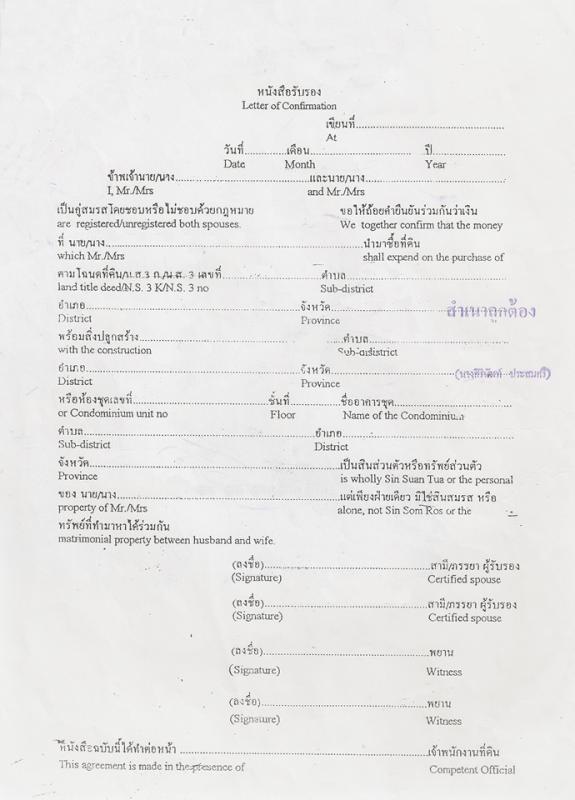 หนังสือรับรอง
Letter of Confirmation
เขียนที่..................................................
At
วันที่..............เดือน.....................................ปี.........................
Date Month Year
ข้าพเจ้านาย/นาง..............................................และนาย/นาง..............................................
I, Mr./Mrs and Mr./Mrs
เป็นคู่สมรสโดยชอบหรือไม่ชอบด้วยกฎหมาย ขอให้ถ้อยคำยืนยันร่วมกันว่าเงิน
are registered/unregistered both spouses. We together confirm that the money
ที่ นาย/นาง......................................................................................นำมาซื้อที่ดิน
which Mr./Mrs shall expend on the purchase of
ตามโฉนดที่ดิน/น.ส.3 ก./น.ส.3 เลขที่................................ตำบล..............................................
land title deed/N.S. 3 K/N.S. 3 no Sub-district
อำเภอ......................................................................จังหวัด..............................................
District Province
สำเนาถูกต้อง
พร้อมสิ่งปลูกสร้าง..............................................................ตำบล..............................................
with the construction Sub-district
อำเภอ......................................................................จังหวัด..............................................
District Province
หรือห้องชุดเลขที่..............................................ชั้นที่................ชื่ออาคารชุด..............................
or Condominium unit no Floor Name of the Condominium
ตำบล......................................................................อำเภอ..............................................
Sub-district District
จังหวัด......................................................................................เป็นสินส่วนตัวหรือทรัพย์ส่วนตัว
Province is wholly Sin Suan Tua or the personal
ของ นาย/นาง..............................................................................แต่เพียงฝ่ายเดียว มิใช่สินสมรส หรือ
property of Mr./Mrs alone, not Sin Som Ros or the
ทรัพย์ที่ทำมาหาได้ร่วมกัน
matrimonial property between husband and wife.
(ลงชื่อ)..............................................สามี/ภรรยา ผู้รับรอง
(Signature) Certified spouse
(ลงชื่อ)..............................................สามี/ภรรยา ผู้รับรอง
(Signature) Certified spouse
(ลงชื่อ)..............................................พยาน
(Signature) Witness
(ลงชื่อ)..............................................พยาน
(Signature) Witness
หนังสือฉบับนี้ได้ทำต่อหน้า ..............................................................เจ้าพนักงานที่ดิน
This agreement is made in the presence of Competent Official